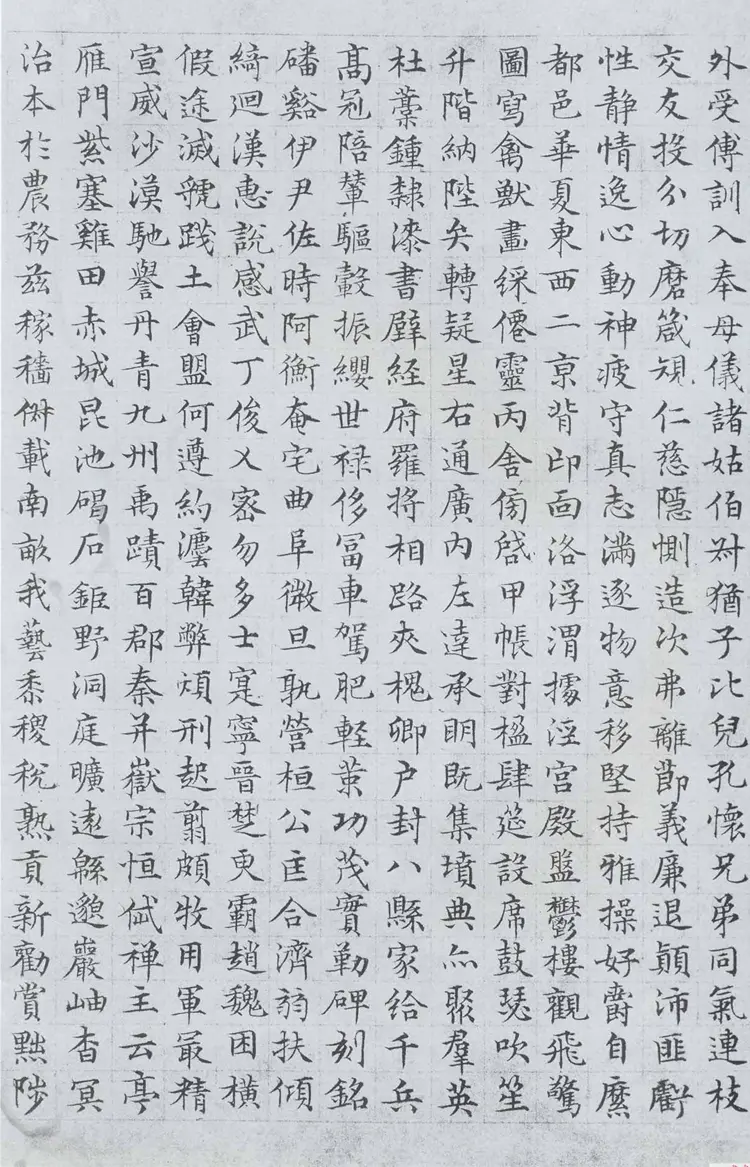 外受傅訓入奉母儀諸姑伯叔猶子比兒孔懷兄弟同氣連枝
交友投分切磨箴規仁慈隱惻造次弗離節義廉退顛沛匪虧
性静情逸心動神疲守真志滿逐物意移堅持雅操好爵自縻
都邑華夏東西二京背邙面洛浮渭據涇宮殿盤鬱樓觀飛驚
圖寫禽獸畫綵僊靈丙舍傍啓甲帳對楹肆筵設席鼓瑟吹笙
升階納陛弁轉疑星右通廣内左達承明既集墳典亦聚羣英
杜稾鍾隸漆書壁經府羅將相路夾槐卿户封八縣家給千兵
髙冠陪輦驅轂振纓世禄侈冨車駕肥軽策功茂實勒碑刻銘
磻谿伊尹佐時阿衡奄宅曲阜微旦孰營桓公匡合濟弱扶傾
綺迴漢惠説感武丁俊乂密勿多士寔寧晉楚更霸趙魏困横
假途滅虢踐土會盟何遵約灋韓弊煩刑起翦頗牧用軍最精
宣威沙漠馳譽丹青九州禹蹟百郡秦并嶽宗恒岱禅主云亭
雁門紫塞雞田赤城昆池碣石鉅野洞庭曠遠緜邈巖岫杳冥
治本於農務兹稼穡俶載南畝我藝黍稷税熟貢新勸賞黜陟